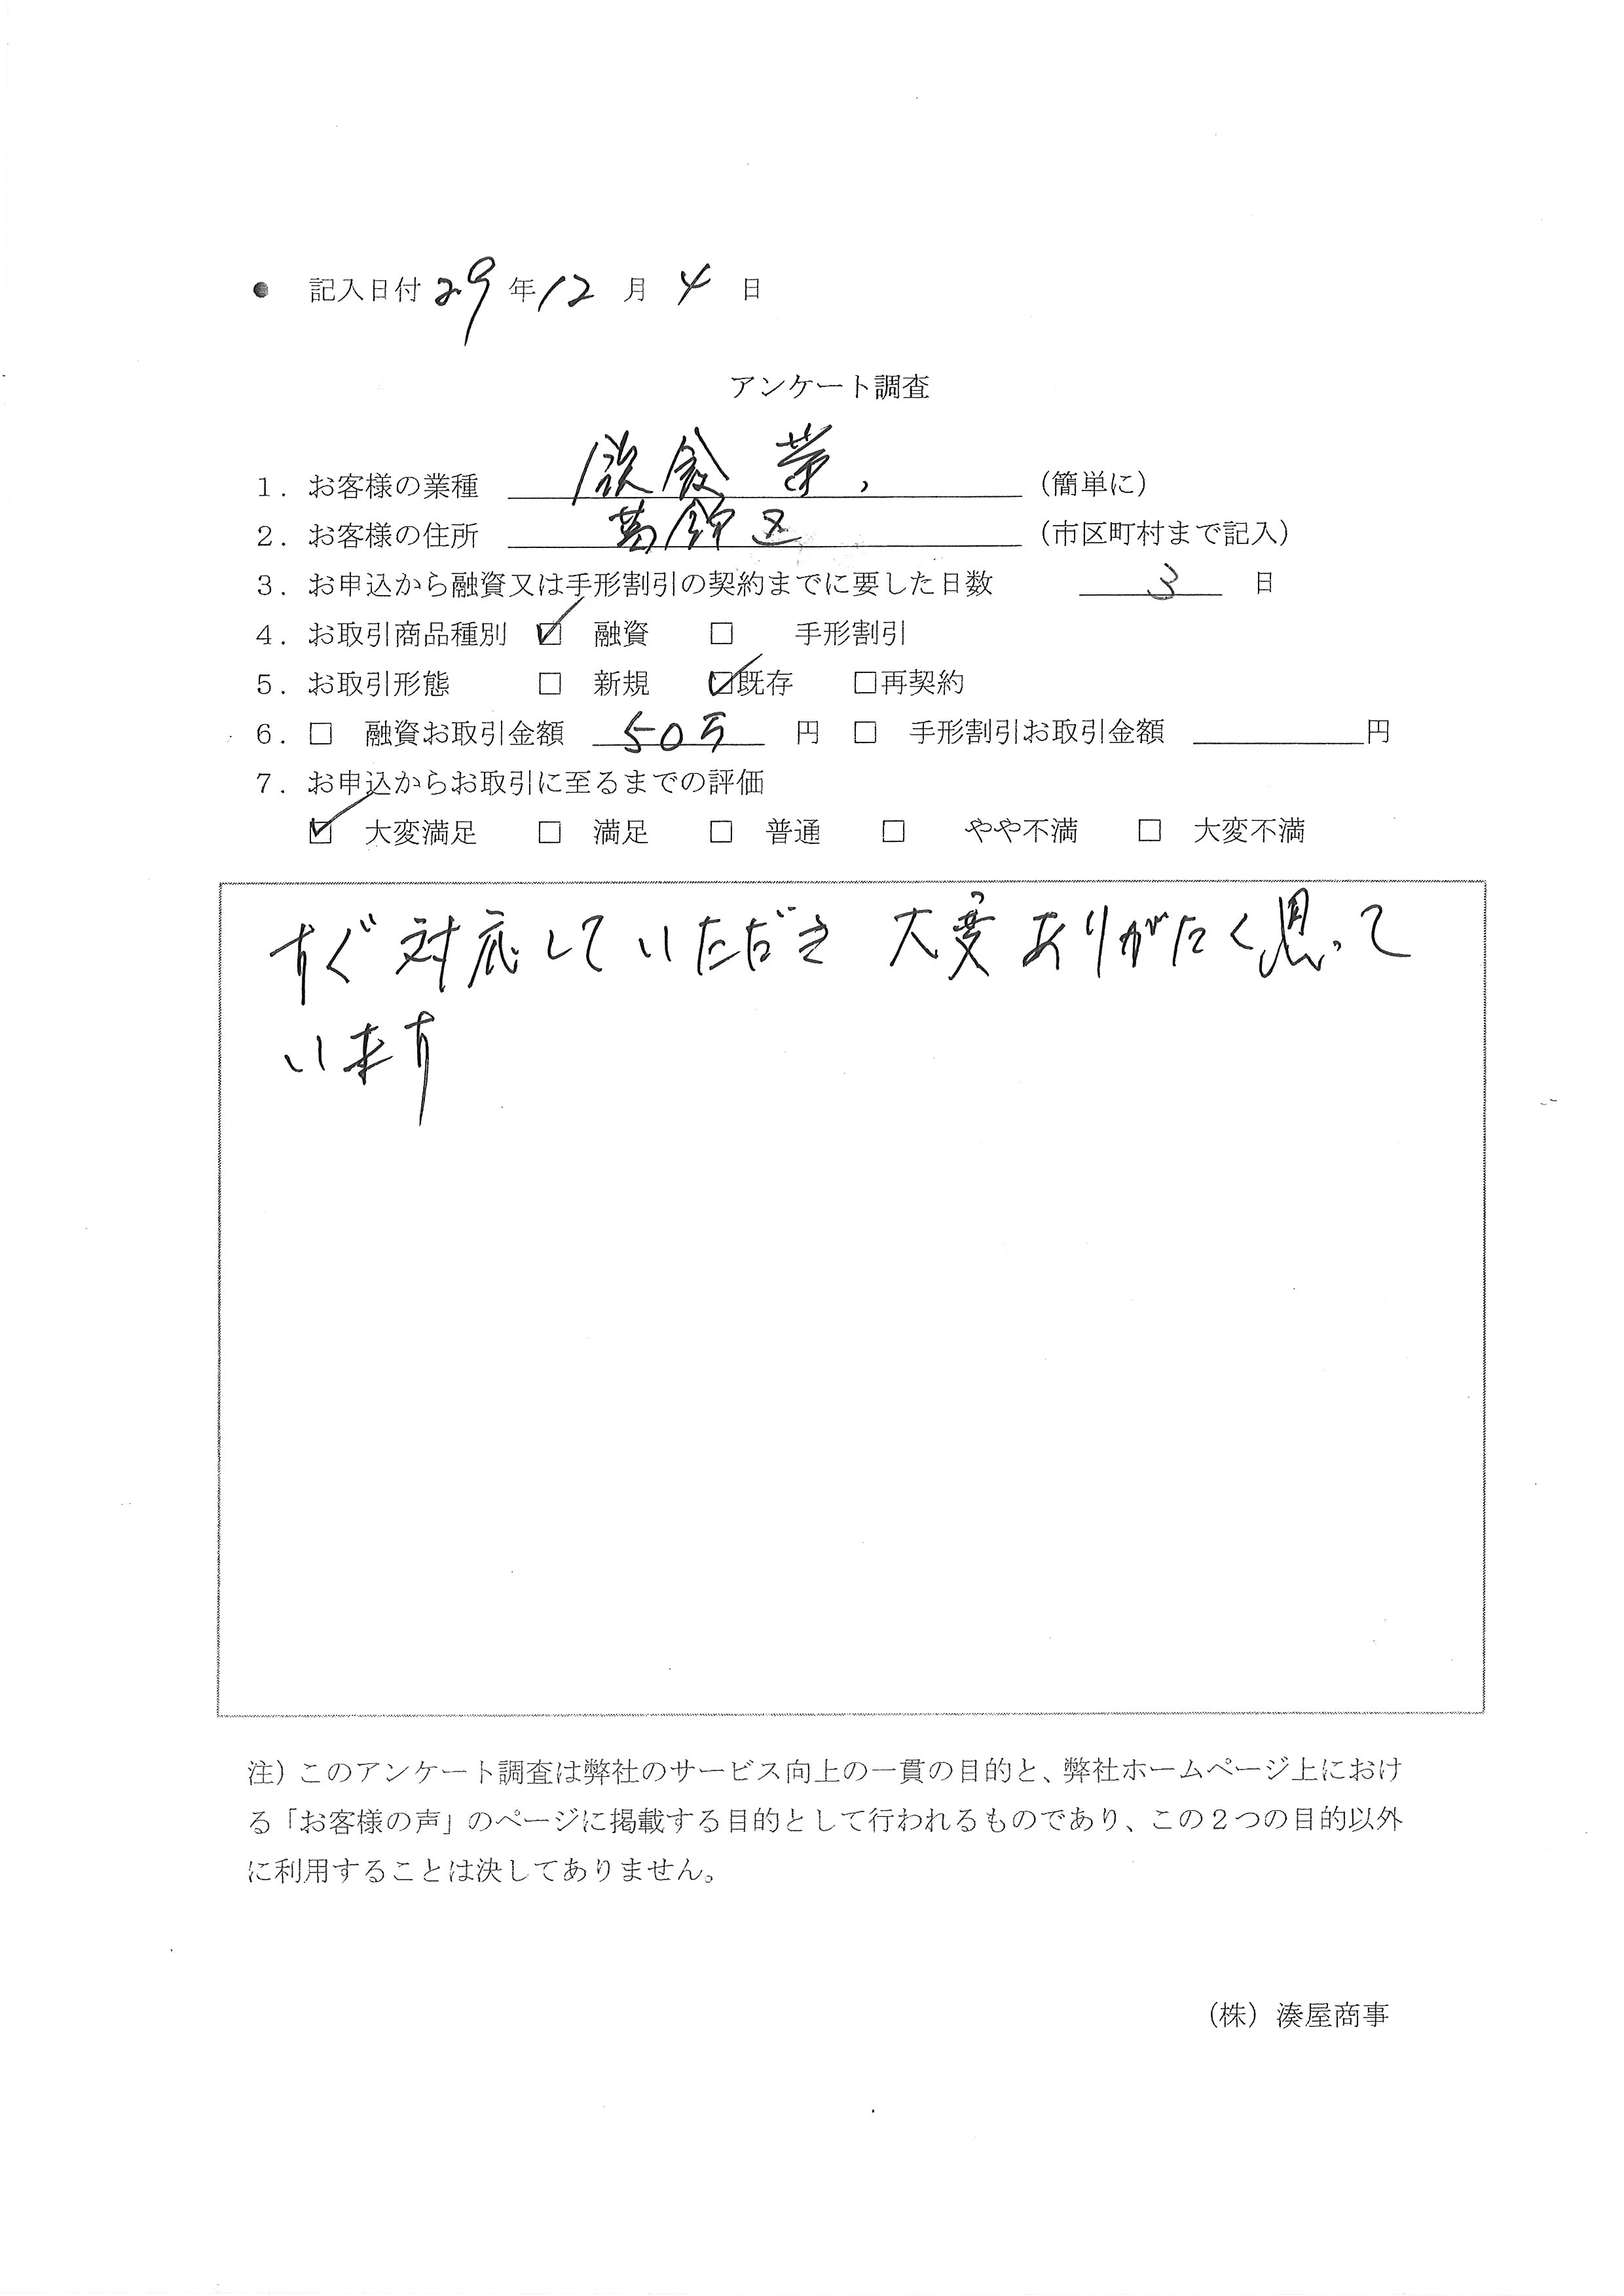 ● 記入日付 29 年 12 月 4 日
アンケート調査
1. お客様の業種 飲食業, (簡単に)
2. お客様の住所 葛飾区 (市区町村まで記入)
3. お申込から融資又は手形割引の契約までに要した日数 3 日
4. お取引商品種別 ☑ 融資 □ 手形割引
5. お取引形態 □ 新規 ☑既存 □再契約
6. □ 融資お取引金額 50万 円 □ 手形割引お取引金額 円
7. お申込からお取引に至るまでの評価
☑ 大変満足 □ 満足 □ 普通 □ やや不満 □ 大変不満
すぐ対応していただき 大変ありがたく思って
います
注)このアンケート調査は弊社のサービス向上の一貫の目的と、弊社ホームページ上におけ
る「お客様の声」のページに掲載する目的として行われるものであり、この2つの目的以外
に利用することは決してありません。
(株)湊屋商事